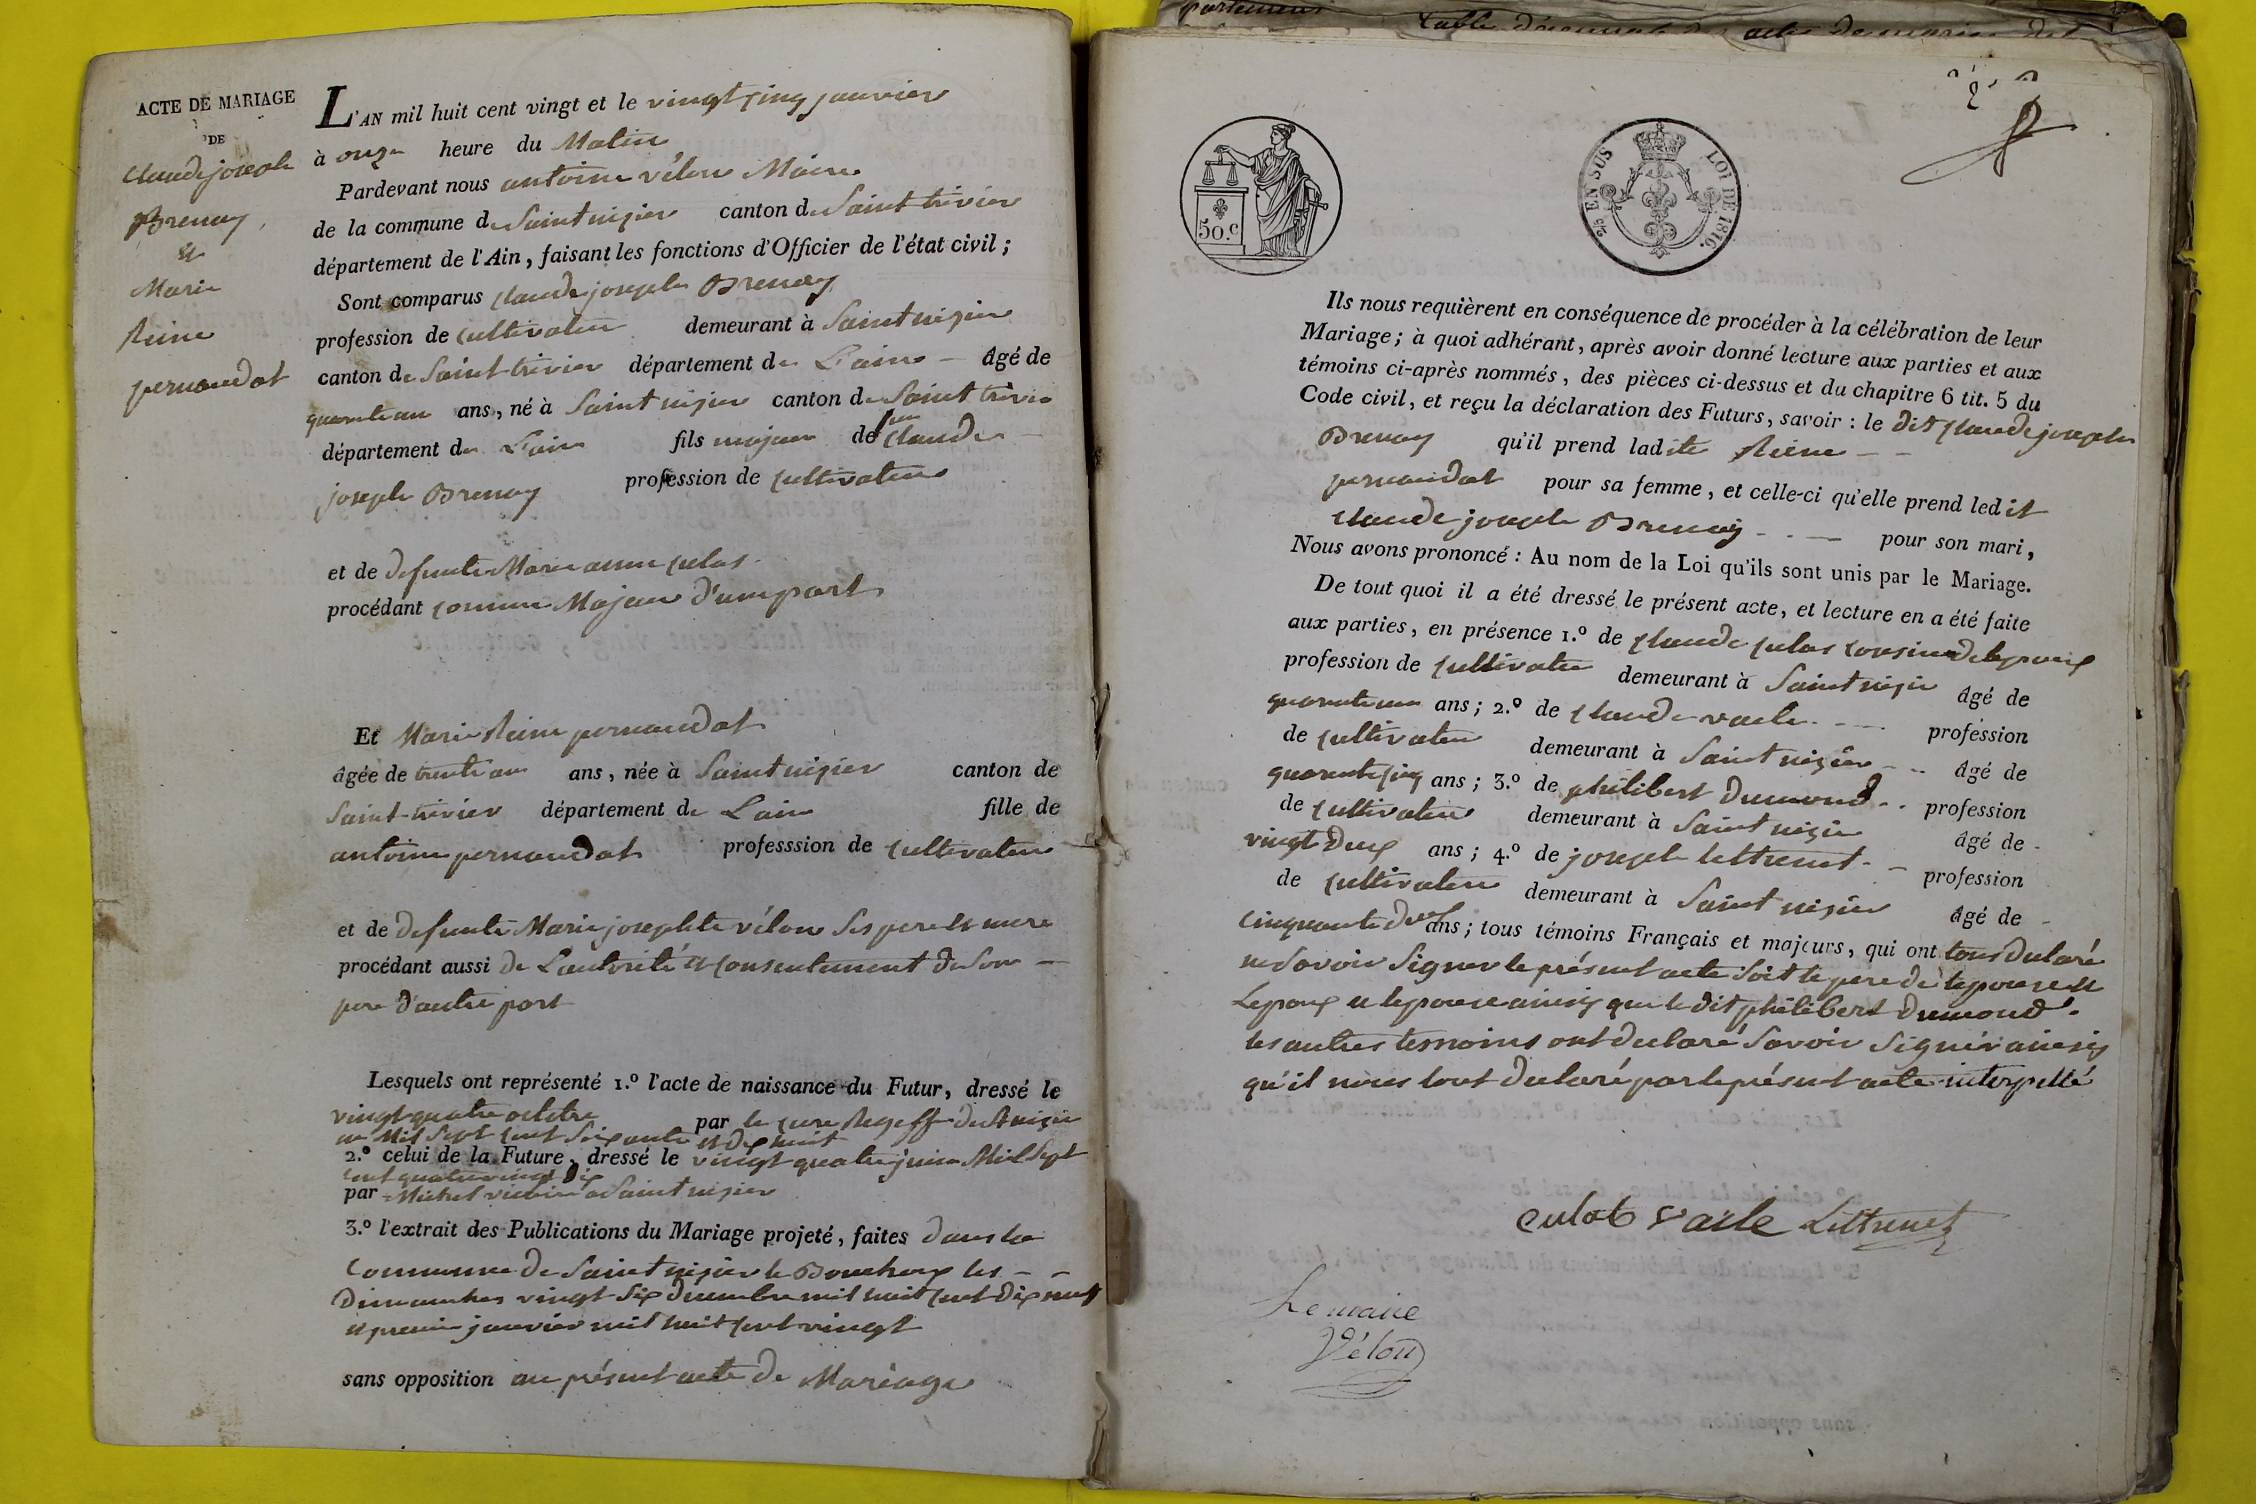 ACTE DE MARIAGE
DE
Claude joseph
Brenay
et
Marie
Reine
pernaudat
L'AN mil huit cent vingt et le vingt cinq janvier
à onze heure du Matin
Pardevant nous antoine vélon Maire
de la commune de Saint nizier canton de Saint trivier
département de l'Ain, faisant les fonctions d'Officier de l'état civil ;
Sont comparus claude joseph Brenay
profession de cultivateur demeurant à Saint nizier
canton de Saint-trivier département de L'ain — âgé de
quarante un ans, né à Saint nizier canton de Saint trivier
département de L'ain fils majeur de claude —
joseph Brenay profession de cultivateur
et de defunte Marie anne culas
procédant comme Majeur d'une part
Et Marie Reine pernaudat
âgée de trente ans, née à Saint nizier canton de
Saint-trivier département de L'ain fille de
antoine pernaudat professsion de cultivateur
et de defunte Marie josephte vélon Ses pere et mere
procédant aussi de L'autorité et consentement de Son —
pere d'autre part
Lesquels ont représenté 1.º l'acte de naissance du Futur, dressé le
vingt quatre octobre par le cure de St nizier
mil Sept cent Soixante et dix huit
2.º celui de la Future, dressé le vingt quatre juin Mil Sept
cent quatre vingt dix
par Michel vicaire a Saint nizier
3.º l'extrait des Publications du Mariage projeté, faites dans la
Commune de Saint nizier le Bouchoux les — —
Dimanches vingt Six decembre mil huit cent dix neuf
et premier janvier mil huit cent vingt
sans opposition au présent acte de Mariage
2
50.c
2/10 EN SUS LOI DE 1816.
Ils nous requièrent en conséquence de procéder à la célébration de leur
Mariage ; à quoi adhérant, après avoir donné lecture aux parties et aux
témoins ci-après nommés, des pièces ci-dessus et du chapitre 6 tit. 5 du
Code civil, et reçu la déclaration des Futurs, savoir : le dit claude joseph
Brenay qu'il prend ladite Reine — —
pernaudat pour sa femme, et celle-ci qu'elle prend ledit
claude joseph Brenay - - — pour son mari,
Nous avons prononcé : Au nom de la Loi qu'ils sont unis par le Mariage.
De tout quoi il a été dressé le présent acte, et lecture en a été faite
aux parties, en présence 1.º de claude culas cousin de lepoux
profession de cultivateur demeurant à Saint nizier âgé de
quarante un ans ; 2.º de claude vaile - — profession
de cultivateur demeurant à Saint nizier - - âgé de
quarante cinq ans ; 3.º de philibert Dumond - - profession
de cultivateur demeurant à Saint nizier âgé de -
vingt Deux ans ; 4.º de joseph lettrenet - — profession
de cultivateur demeurant à Saint nizier âgé de -
cinquante deux ans ; tous témoins Français et majeurs, qui ont tous declaré
ne Savoir Signer le présent acte Soit le pere de lepouse et
Lepoux et lepouse ainsy que le dit philibert Dumond.
les autres temoins ont declaré Savoir Signér ainsy
qu'il nous l'ont declaré par le présent acte interpellé
Culat Vaile Lettrenet
Le maire
Vélon